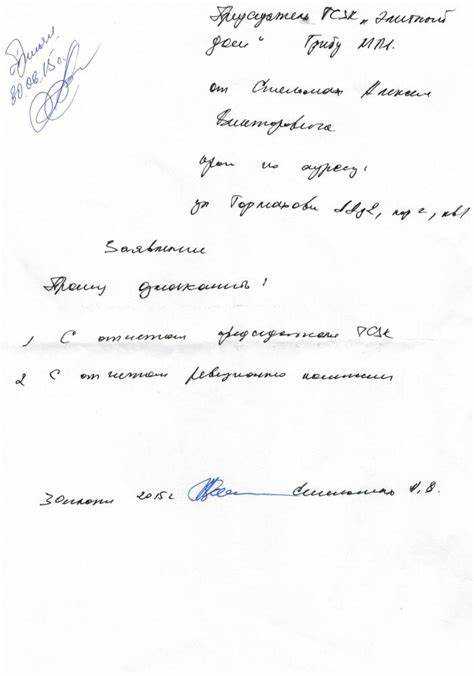 Принял
30.06.15г.
Председателю ГСЖ "Элитный
дом" Грибу М.М.
от Стельмах Алексея
Викторовича
прож по адресу:
ул Горманова
Заявление
Прошу ознакомить!
1 С отчетом председателя ГСЖ
2 С отчетом ревизионно комиссии
30 июня 2015 г Стельмах А.В.